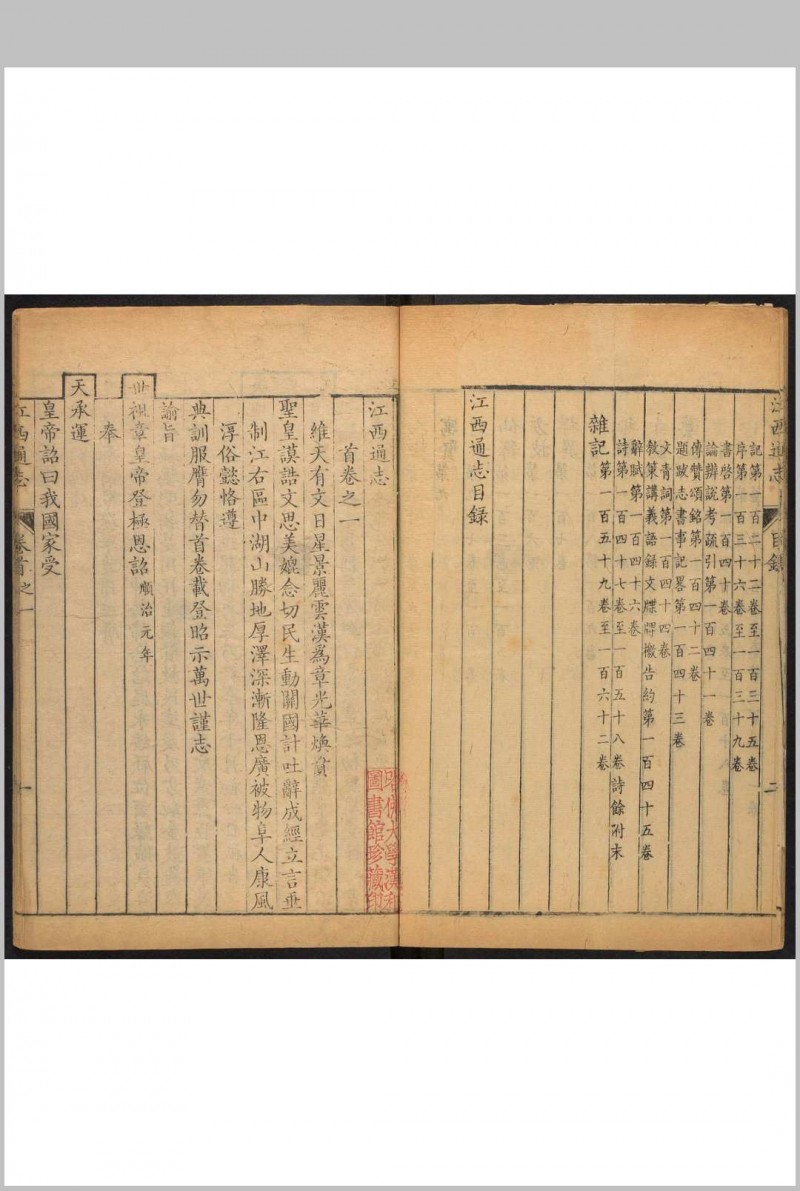 江西通志
目錄
二
記第一百二十二卷至一百三十五卷
序第一百三十六卷至一百三十九卷
書啓第一百四十卷
論辯說考疏引第一百四十一卷
傳贊頌銘第一百四十二卷
題跋志書事記畧第一百四十三卷
文青詞第一百四十四卷
教策講義語錄文牒牌檄告約第一百四十五卷
辭賦第一百四十六卷
詩第一百四十七卷至一百五十八卷詩餘附末
雜記第一百五十九卷至一百六十二卷
江西通志目錄
江西通志
首卷之一
維天有文日星景麗雲漢為章光華煥賁
聖皇謨誥文思美媲念切民生動關國計吐辭成經立言垂
制江右區中湖山勝地厚澤深漸隆恩廣被物阜人康風
淳俗懿恪遵
典訓服膺勿替首卷載登昭示萬世謹志
諭旨
世祖章皇帝登極恩詔順治元年
奉
天承運
皇帝詔曰我國家受
江西通志
卷首之一
一
哈佛大學漢和
圖書館珍藏印